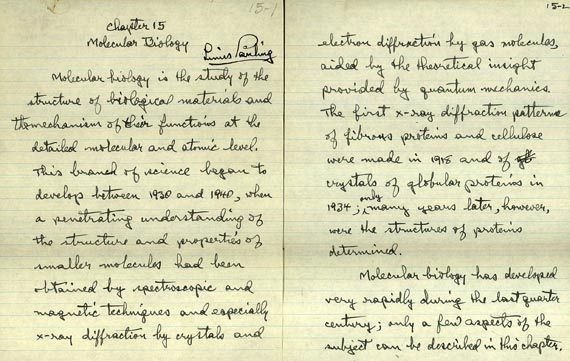 15-1
Chapter 15
Molecular Biology
Linus Pauling
Molecular biology is the study of the
structure of biological materials and
the mechanism of their functions at the
detailed molecular and atomic level.
This branch of science began to
develop between 1930 and 1940, when
a penetrating understanding of
the structure and properties of
smaller molecules had been
obtained by spectroscopic and
magnetic techniques and especially
x-ray diffraction by crystals and
15-2
electron diffraction by gas molecules,
aided by the theoretical insight
provided by quantum mechanics.
The first x-ray diffraction patterns
of fibrous proteins and cellulose
were made in 1918 and of
crystals of globular proteins in
1934; only many years later, however,
were the structures of proteins
determined.
Molecular biology has developed
very rapidly during the last quarter
century; only a few aspects of the
subject can be described in this chapter.